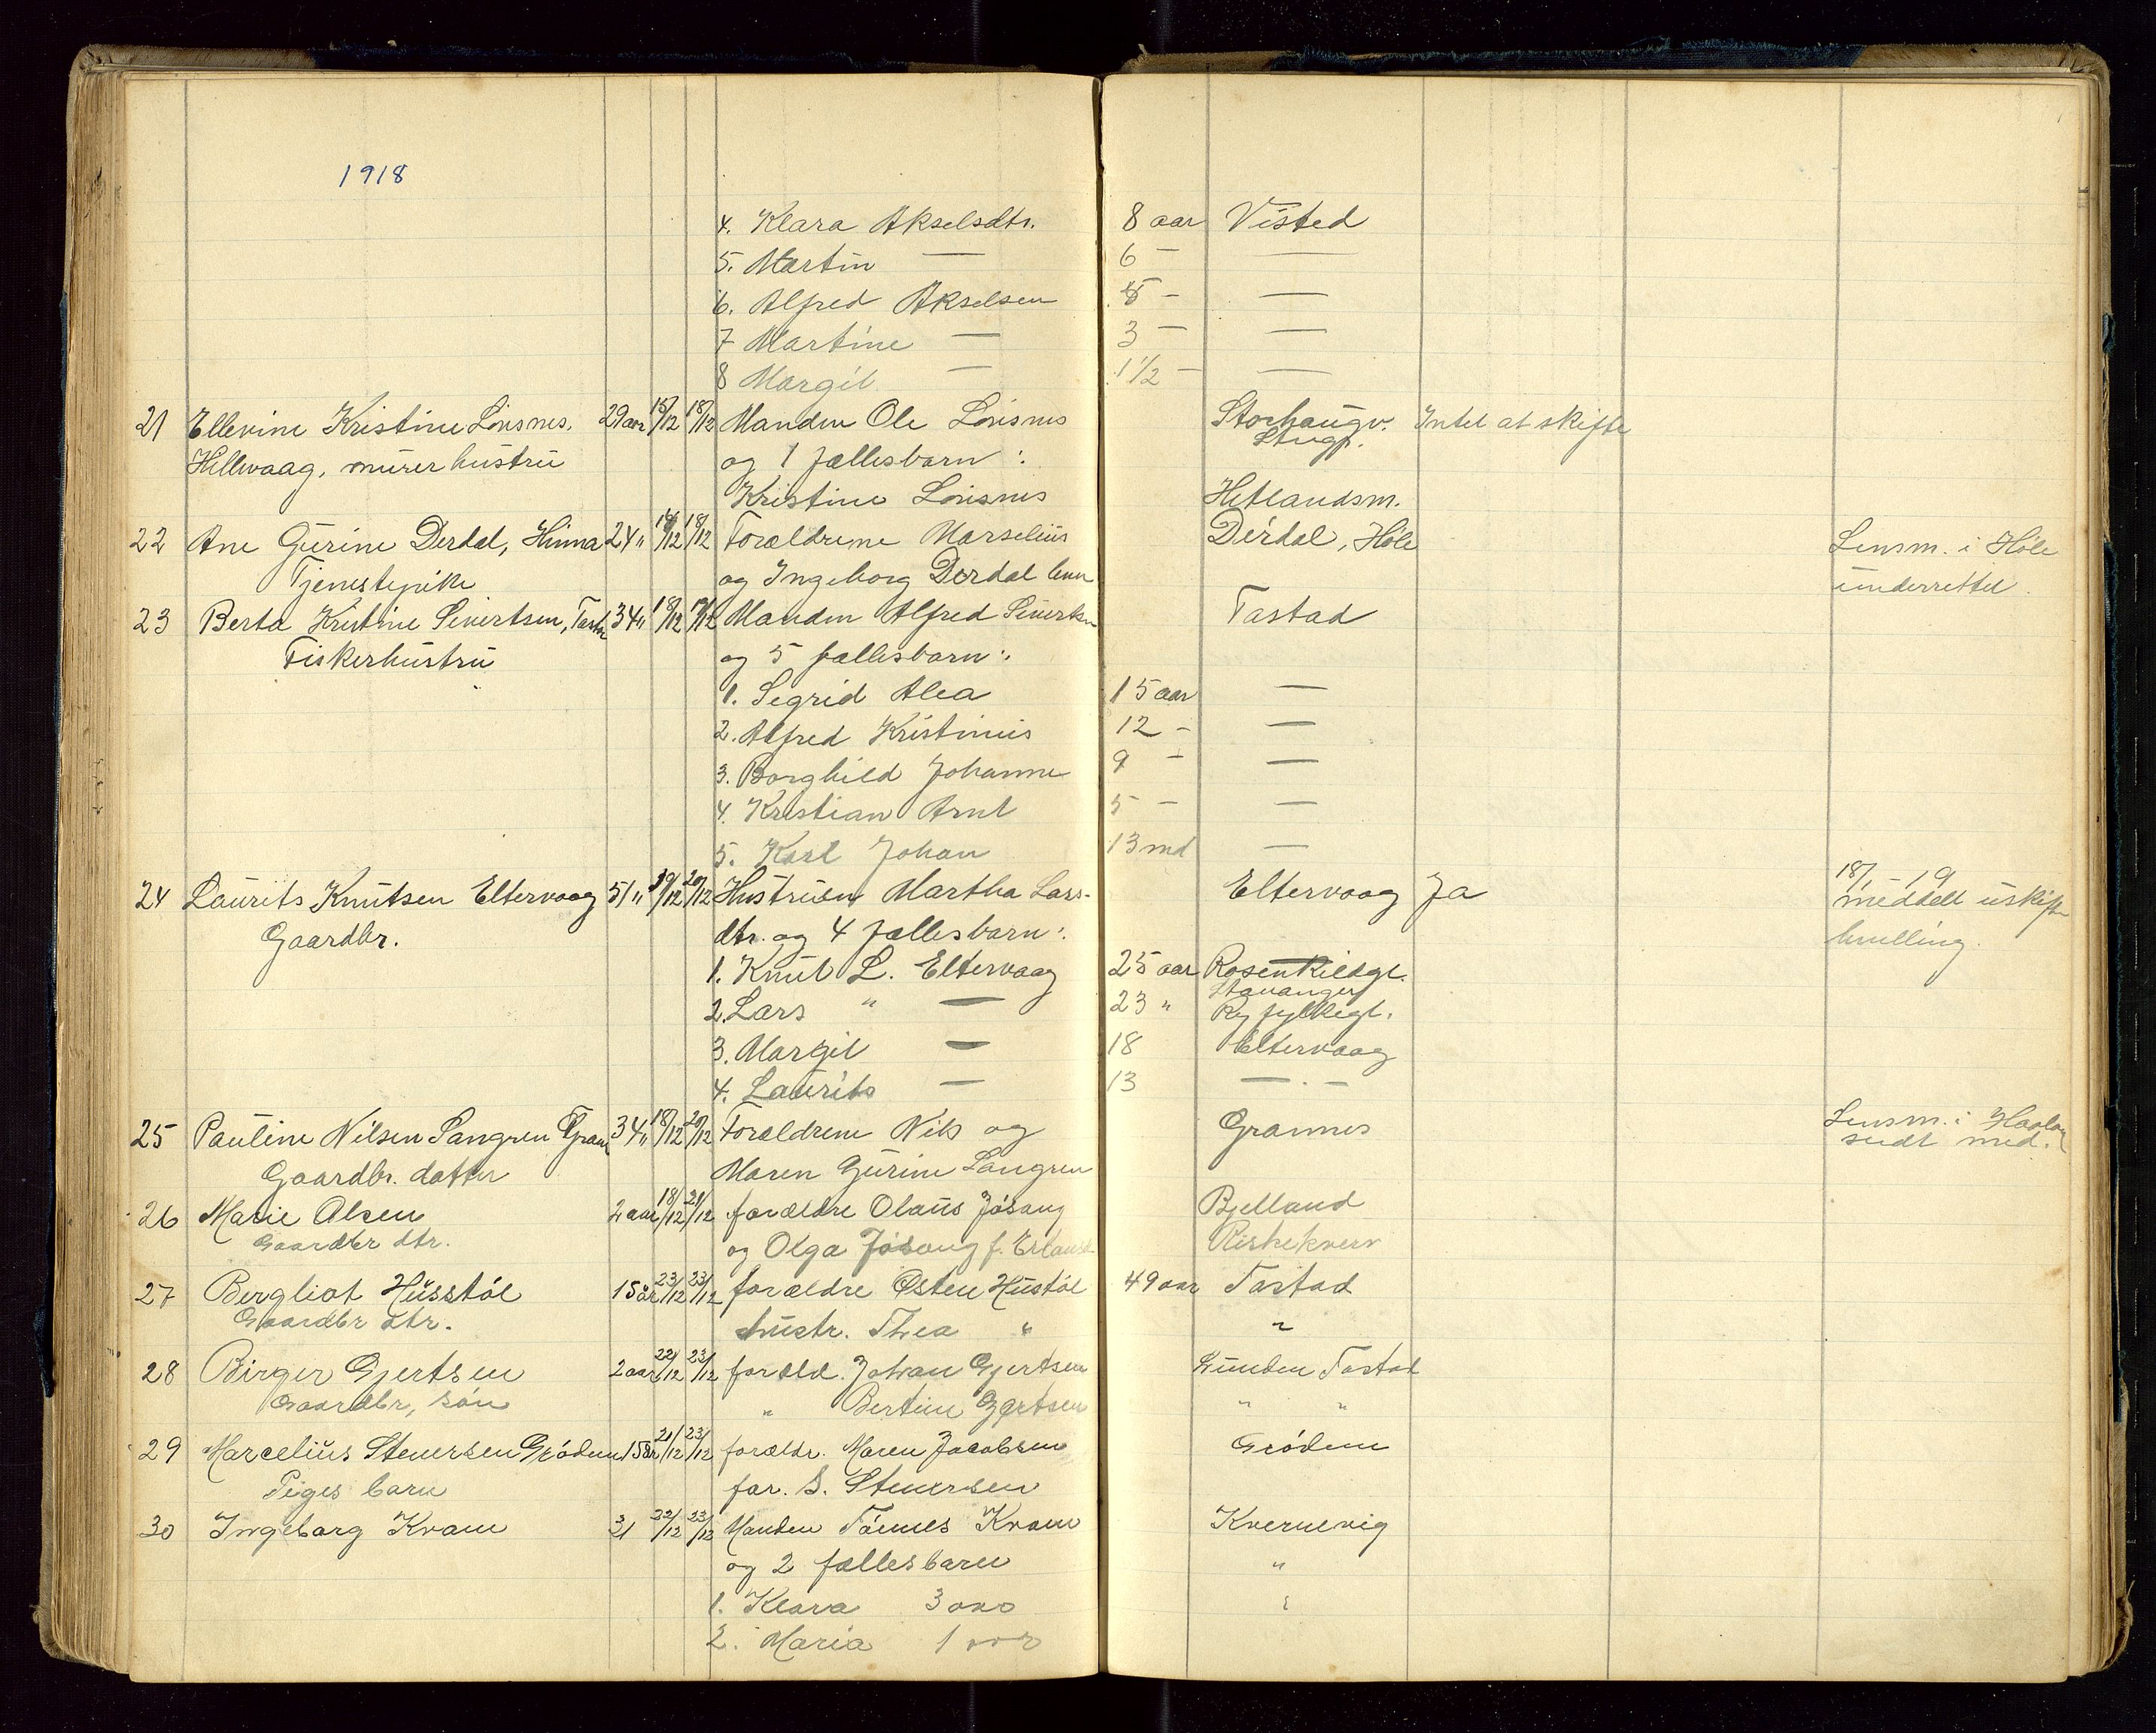 1918
4. Klara Akselsdtr. 8 aar Visted
5. Martin — 6 — —
6. Alfred Akselsen 5 — —
7 Martine — 3 — —
8 Margit — 1 1/2 — —
21 Ellevine Kristine 29 aar 15/12 18/12 Manden Ole Storhaugv. Intet at skifte
Hillevaag, murer hustru og 1 fællesbarn: Stvgr.
Kristine Hetlandsm.
22 Ane Gurine Derdal, Hinna 24 " 14/12 18/12 Forældrene Marselius Derdal, Høle Lensm. i Høle
Tjenestepike og Ingeborg Derdal underrettet.
23 Berta Kristine Sivertsen, Tastad 34 " 18/12 19/12 Manden Alfred Sivertsen Tastad
Fiskerhustru og 5 fællesbarn:
1. Segrid Alea 15 aar —
2. Alfred Kristinius 12 — —
3. Borghild Johanne 9 — —
4. Kristian Arnt 5 — —
5. Karl Johan 13 md —
24 Laurits Knutsen Eltervaag 51 " 19/12 20/12 Hustruen Martha Lars- Eltervaag Ja 18/1 - 19
Gaardbr. dtr. og 4 fællesbarn: meddelt uskifte
bevilling.
1. Knut L. Eltervaag 25 aar Rosenkildgt.
Stavanger
2. Lars " — 23 " Ryfylkegt.
3. Margit — 18 Eltervaag
4. Laurits — 13 — . —
25 Pauline Nilsen Sangren 34 " 18/12 20/12 Forældrene Nils og Grannes Lensm. i Haaland
Gaardbr. datter Maren Gurine Sangren sendt med.
26 Marie Olsen 2 aar 18/12 21/12 forældre Olaus Jøsang Bjelland
Gaardbr dtr. og Olga Jøsang f. Riskekverv
27 Bergliot Husstøl 15 år 23/12 23/12 forældre Østen Hustøl 49 aar Tastad
Gaardbr dtr. hustr. Thea " "
28 Birger Gjertsen 2 aar 22/12 23/12 foræld. Johan Gjertsen Lunden Tastad
Gaardbr, søn " Bertine Gjertsen " "
29 Marcelius Stenersen Grødem 15 år 21/12 23/12 forældr. Maren Jacobsen Grødem
Piges barn far. S. Stenersen
30 Ingeborg Kvam 31 22/12 23/12 Manden Tønnes Kvam Kvernevig
og 2 fællesbarn "
1. Klara 3 aar "
2. Maria 1 aar